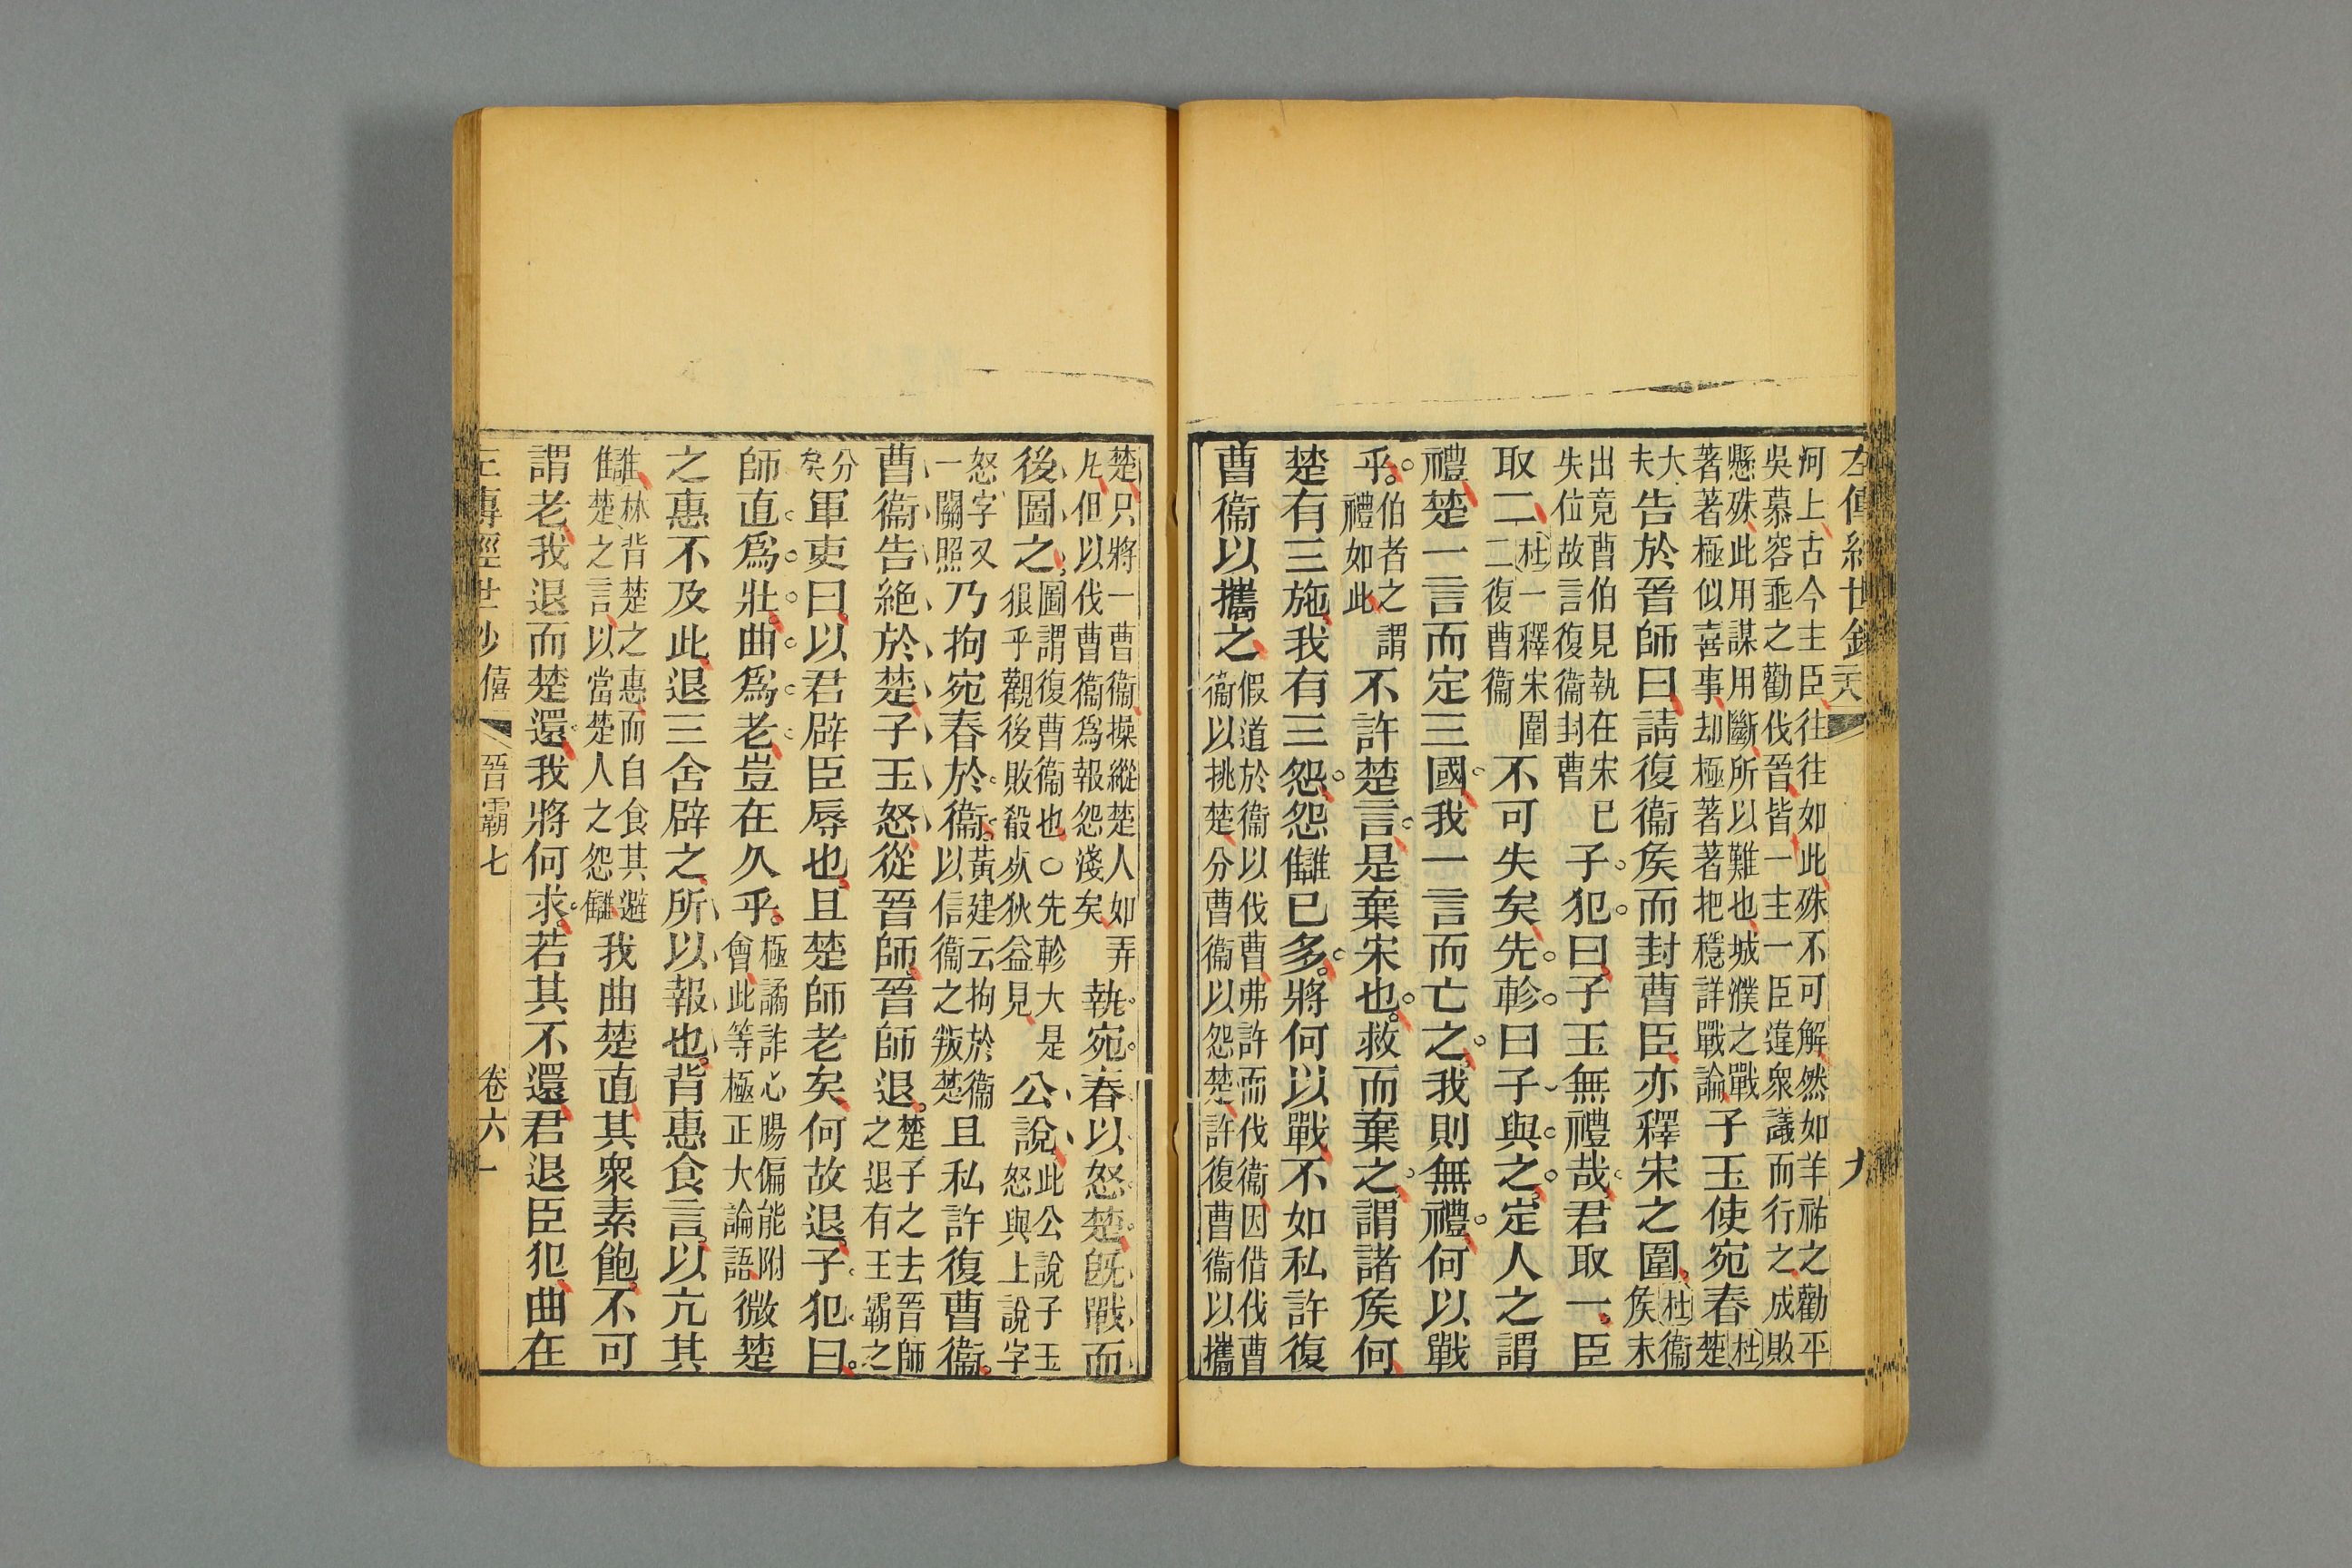 河上古今主臣往往如此殊不可解然如羊祜之勸平
吳慕容垂之勸伐晉皆一主一臣違衆議而行之成敗
懸殊此用謀用斷所以難也城濮之戰
著著極似喜事却極著著把穩詳戰論
子玉使宛春
杜楚
大
夫
告於晉師曰請復衞矦而封曹臣亦釋宋之圍
杜衞
矦未
出竟曹伯見執在宋已
失位故言復衞封曹
子犯曰子玉無禮哉君取一臣
取二
杜一釋宋圍
二復曹衞
不可失矣先軫曰子與之定人之謂
禮楚一言而定三國我一言而亡之我則無禮何以戰
乎
伯者之謂
禮如此
不許楚言是棄宋也救而棄之謂諸矦何
楚有三施我有三怨怨讎已多將何以戰不如私許復
曹衞以攜之
假道於衞以伐曹弗許而伐衞因借伐曹
衞以挑楚分曹衞以怨楚許復曹衞以攜
楚只將一曹衞操縱楚人如弄
凡但以伐曹衞爲報怨淺矣
執宛春以怒楚旣戰而
後圖之
圖謂復曹衞也○先軫大是
狠乎觀後敗殽亦狄益見
公說
此公說子玉
怒與上說字
怒字又
一關照
乃拘宛春於衞
黃建云拘於衞
以信衞之叛楚
且私許復曹衞
曹衞告絶於楚子玉怒從晉師晉師退
楚子之去晉師
之退有王霸之
分
矣
軍吏曰以君辟臣辱也且楚師老矣何故退子犯曰
師直爲壯曲爲老豈在久乎
極譎詐心腸偏能附
會此等極正大論語
微楚
之惠不及此退三舍辟之所以報也背惠食言以亢其
讎
林背楚之惠而自食其避
楚之言以當楚人之怨讎
我曲楚直其衆素飽不可
謂老我退而楚還我將何求若其不還君退臣犯曲在
左傳經世鈔
僖
晉霸七
卷六